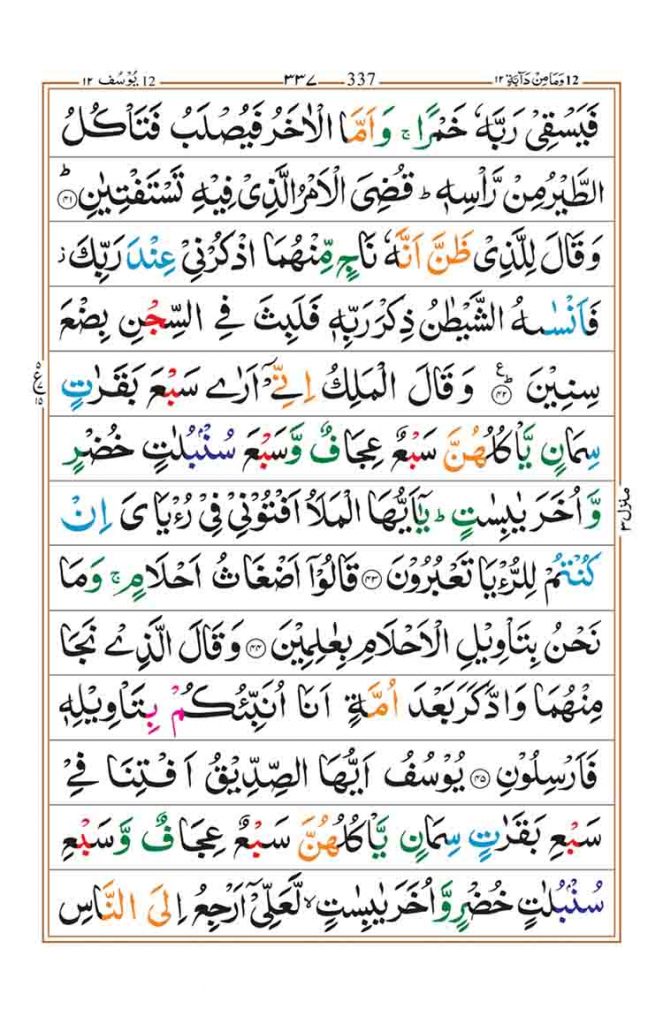 12 وَمَا مِنْ دَآبَّةٍ ١٢ 337 ٣٣٧ 12 يُوْسُف ١٢
فَيَسْقِىْ رَبَّهٗ خَمْرًا ۚ وَاَمَّا الْاٰخَرُ فَيُصْلَبُ فَتَاْكُلُ
الطَّيْرُ مِنْ رَّاْسِهٖ ؕ قُضِىَ الْاَمْرُ الَّذِىْ فِيْهِ تَسْتَفْتِيٰنِ ؕ ﴿۴۱﴾
وَ قَالَ لِلَّذِىْ ظَنَّ اَنَّهٗ نَاجٍ مِّنْهُمَا اذْكُرْنِىْ عِنْدَ رَبِّكَ ز
فَاَنْسٰٮهُ الشَّيْطٰنُ ذِكْرَ رَبِّهٖ فَلَبِثَ فِى السِّجْنِ بِضْعَ
سِنِيْنَ ؕ ﴿۴۲﴾ ع وَ قَالَ الْمَلِكُ اِنِّىْۤ اَرٰى سَبْعَ بَقَرٰتٍ
سِمَانٍ يَّاْكُلُهُنَّ سَبْعٌ عِجَافٌ وَّسَبْعَ سُنْۢبُلٰتٍ خُضْرٍ
وَّ اُخَرَ يٰبِسٰتٍ ؕ يٰۤاَيُّهَا الْمَلَاُ اَفْتُوْنِىْ فِىْ رُءْيَاىَ اِنْ
كُنْتُمْ لِلرُّءْيَا تَعْبُرُوْنَ ﴿۴۳﴾ قَالُوْۤا اَضْغَاثُ اَحْلَامٍ ۚ وَمَا
نَحْنُ بِتَاْوِيْلِ الْاَحْلَامِ بِعٰلِمِيْنَ ﴿۴۴﴾ وَقَالَ الَّذِىْ نَجَا
مِنْهُمَا وَادَّكَرَ بَعْدَ اُمَّةٍ اَنَا اُنَبِّئُكُمْ بِتَاْوِيْلِهٖ
فَاَرْسِلُوْنِ ﴿۴۵﴾ يُوْسُفُ اَيُّهَا الصِّدِّيْقُ اَفْتِنَا فِىْ
سَبْعِ بَقَرٰتٍ سِمَانٍ يَّاْكُلُهُنَّ سَبْعٌ عِجَافٌ وَّسَبْعِ
سُنْۢبُلٰتٍ خُضْرٍ وَّاُخَرَ يٰبِسٰتٍ ۙ لَّعَلِّىْۤ اَرْجِعُ اِلَى النَّاسِ
منزل ٣